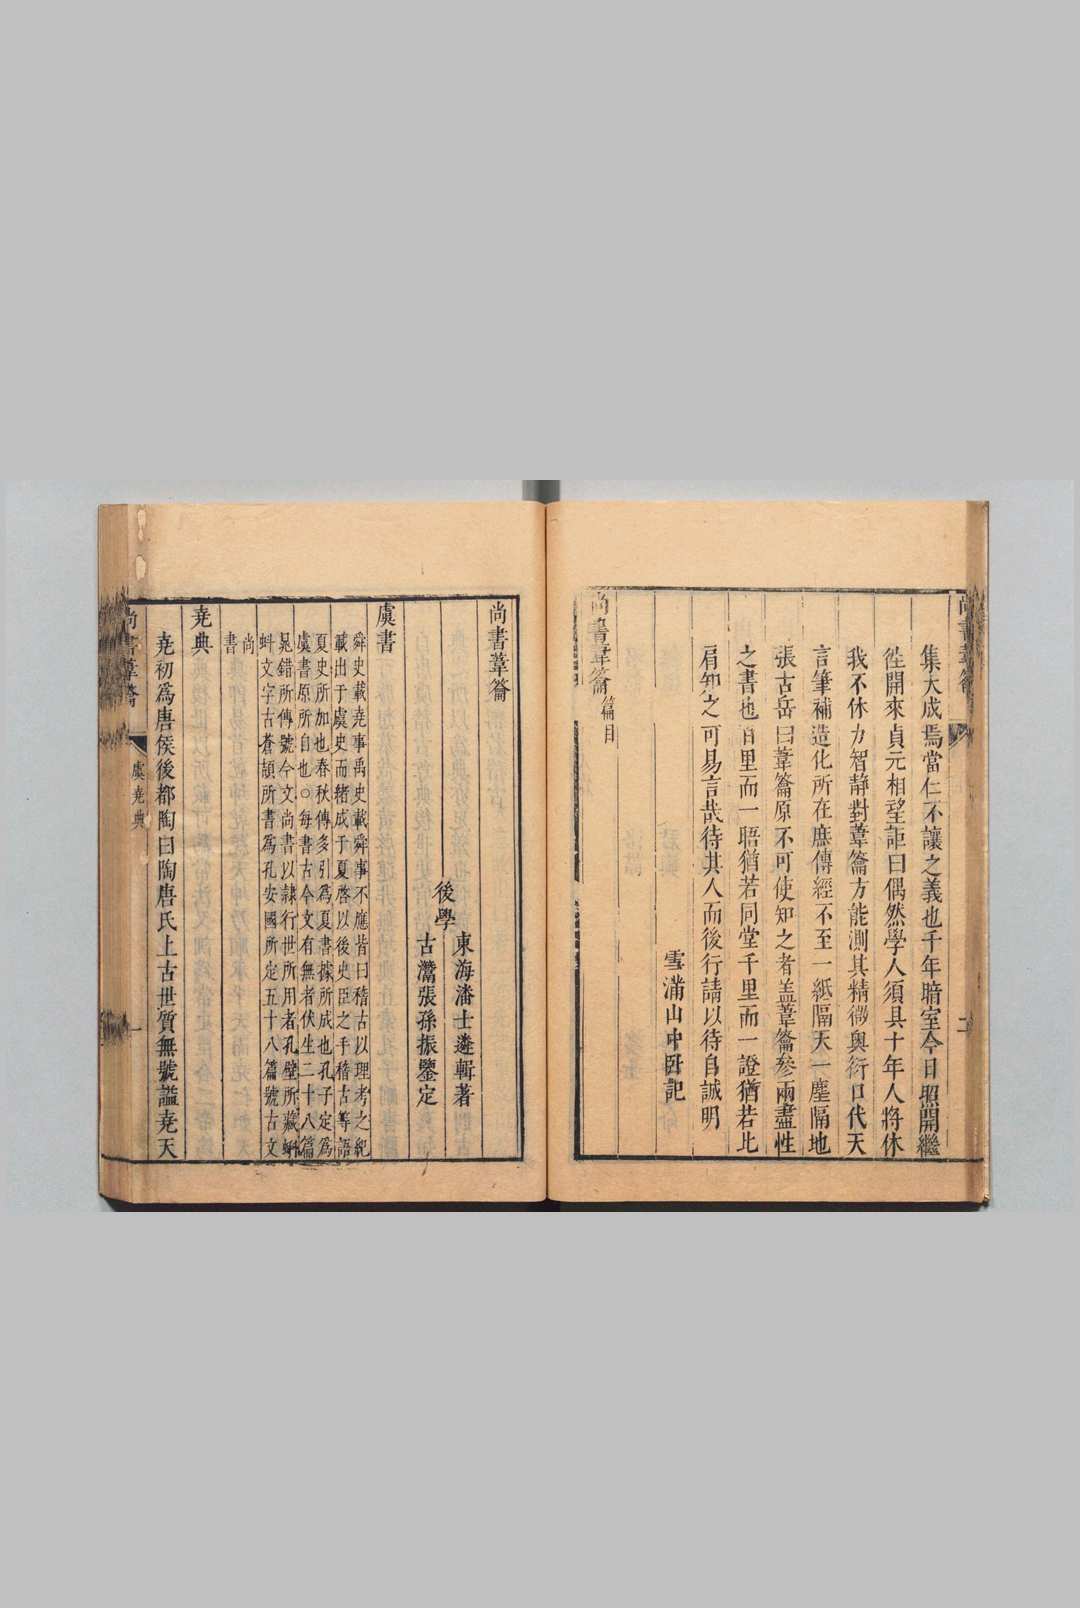 集大成焉當仁不讓之義也千年暗室今日照開繼
徃開來貞元相望詎曰偶然學人須具十年人將休
我不休力智靜對葦籥方能測其精微奧衍口代天
言筆補造化所在庶傳經不至一紙隔天一塵隔地
張古岳曰葦籥原不可使知之者盖葦籥參兩盡性
之書也百里而一晤猶若同堂千里而一證猶若比
肩知之可易言哉待其人而後行請以待自誠明
雪滿山中卧記
尚書葦籥 篇目
尚書葦籥
後學
東海潘士遴輯著
古灊張孫振鑒定
虞書
舜史載堯事禹史載舜事不應皆曰稽古以理考之紀
載出于虞史而緒成于夏啓以後史臣之手稽古等語
夏史所加也春秋傳多引為夏書據所成也孔子定為
虞書原所自也○每書古今文有無者伏生二十八篇
晁錯所傳號今文尚書以隷行世所用者孔壁所藏蝌
蚪文字古蒼頡所書為孔安國所定五十八篇號古文
尚
書
堯典
堯初為唐侯後都陶曰陶唐氏上古世質無號謚堯天
尚書葦籥
虞堯典
一